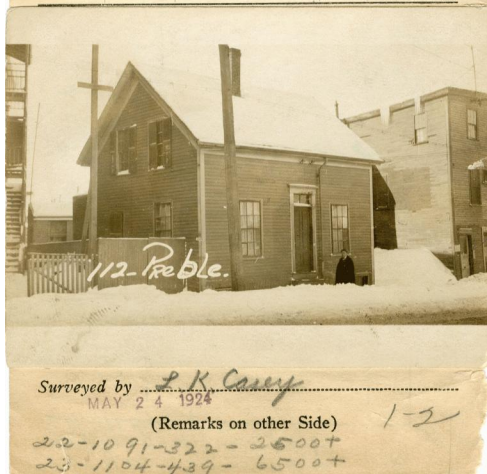 112-Preble.
Surveyed by L. K. Casey
MAY 24 1924
(Remarks on other Side)
1-2
22-1091-322- 2500+
23-1104-439- 6500+